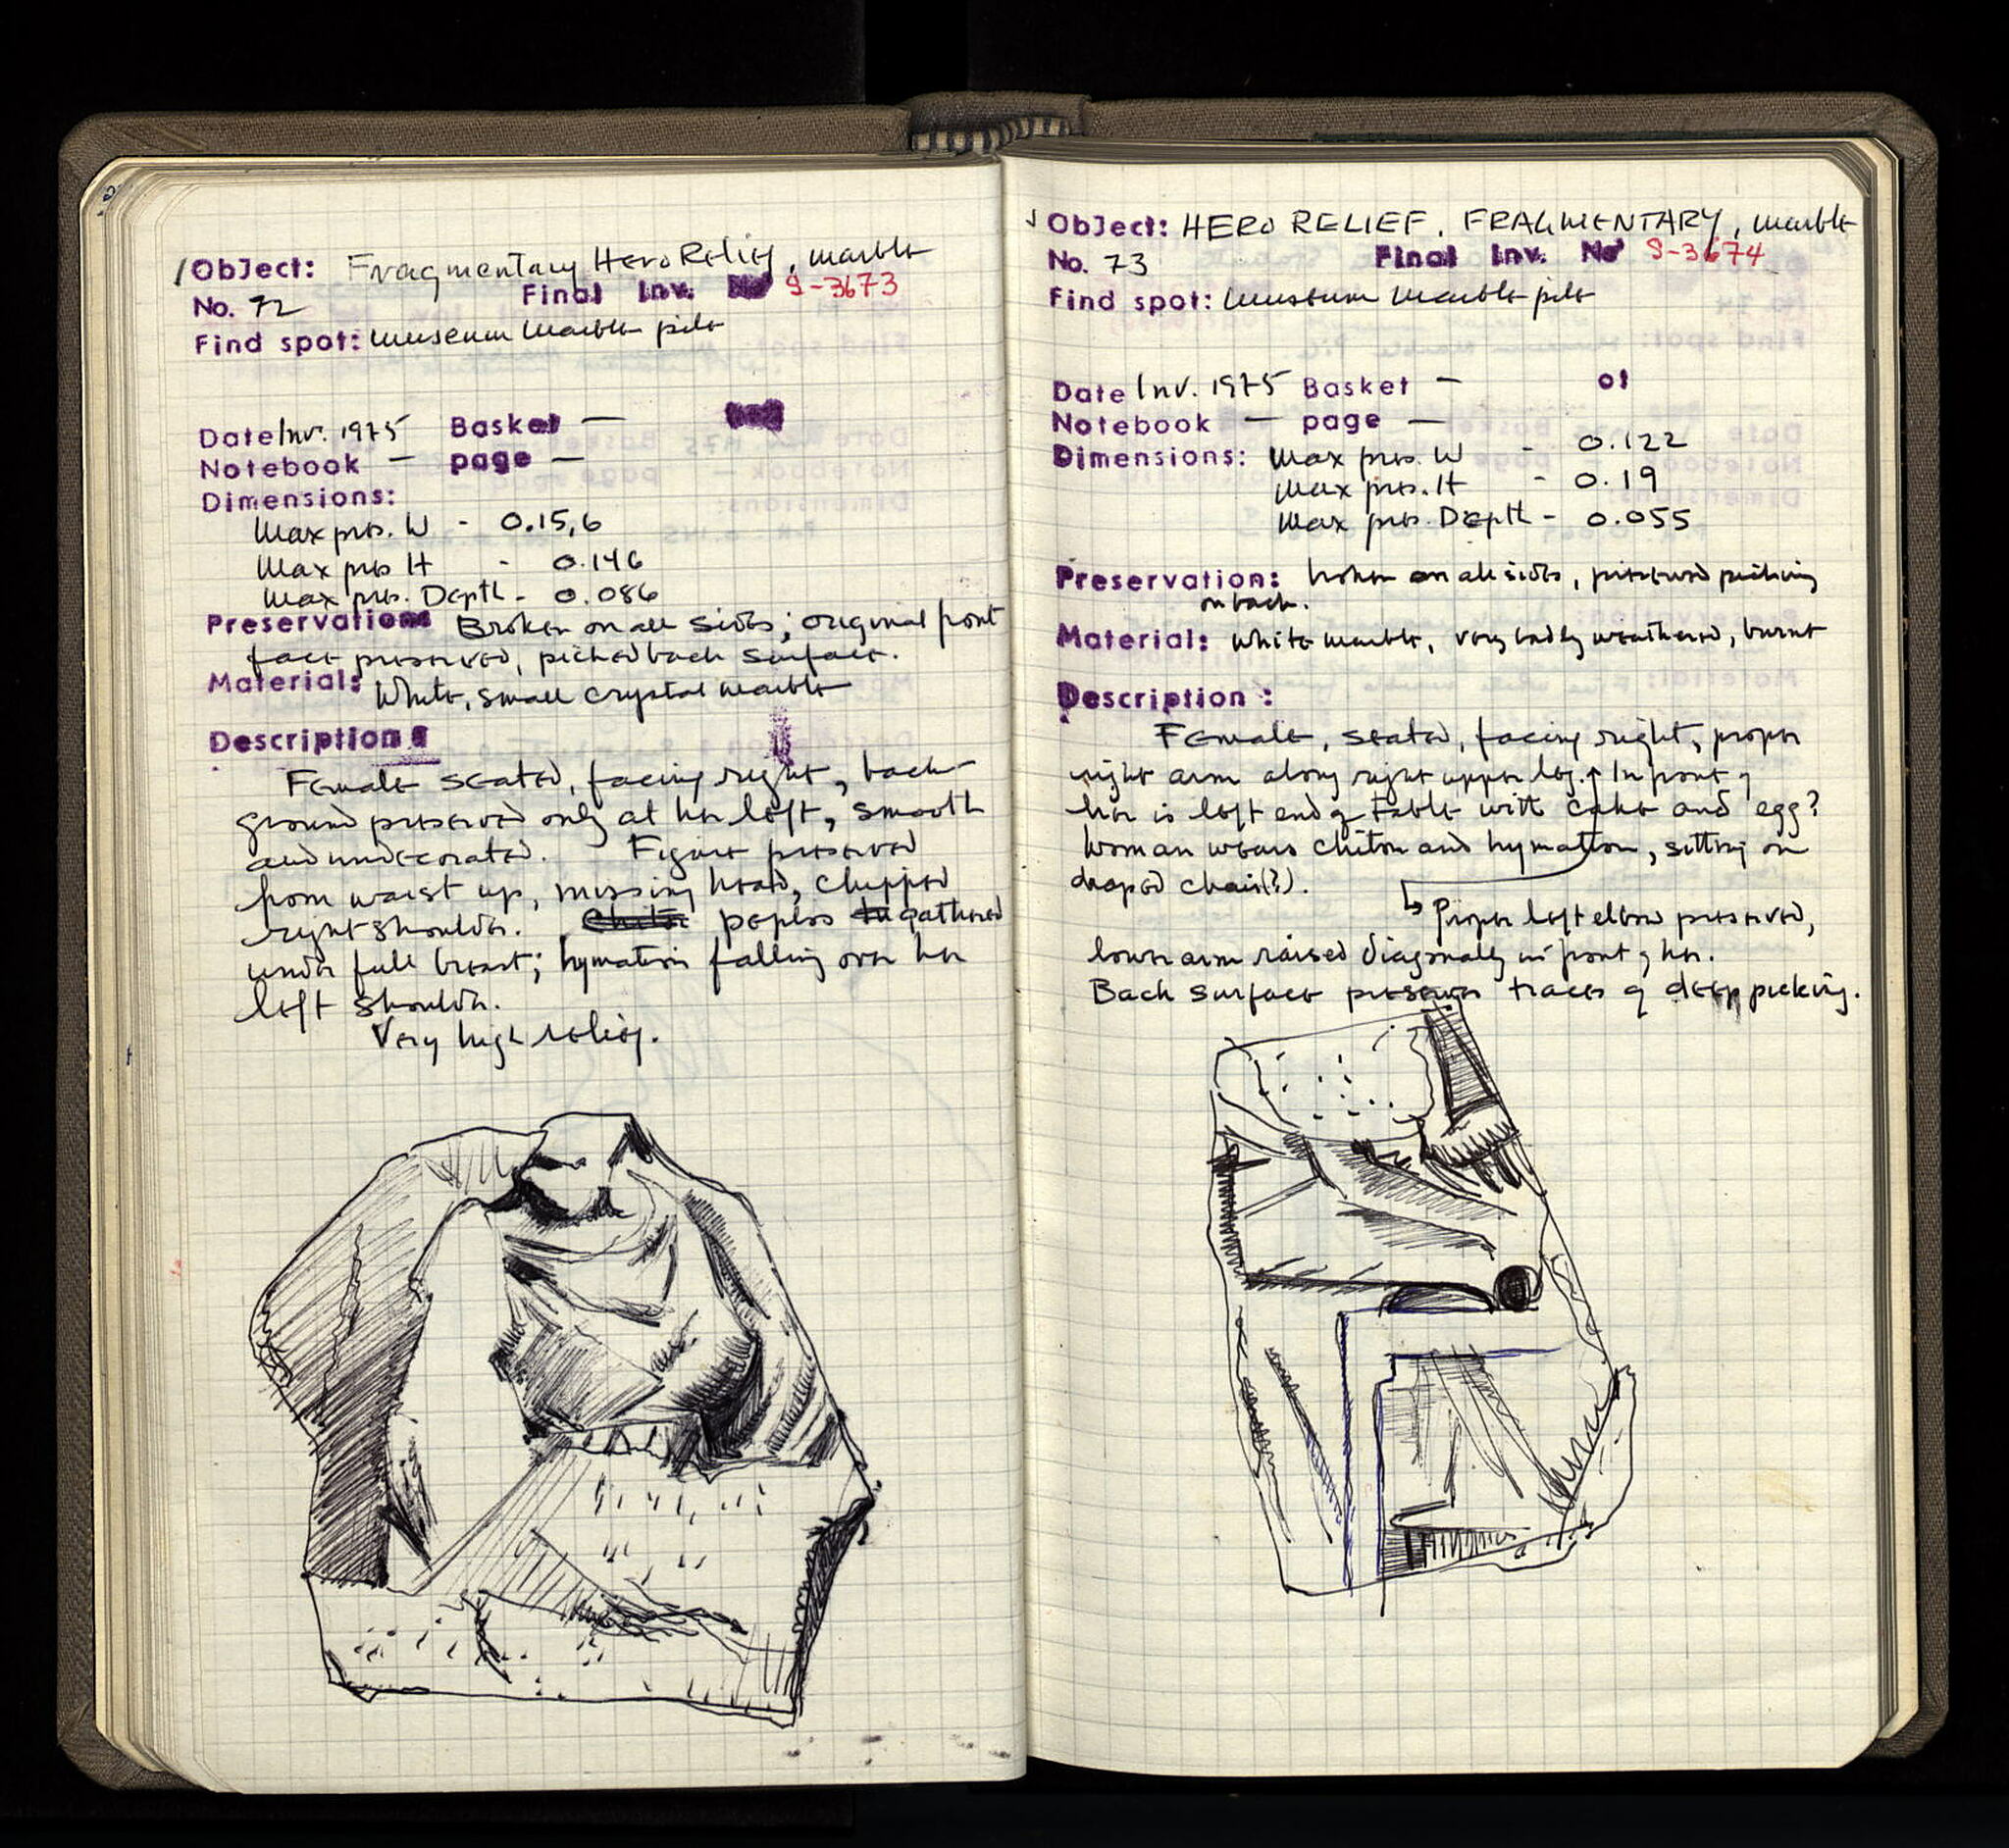 /Object: Fragmentary Hero Relief, marble
No. 72 Final Inv. No S-3673
Find spot: Museum Marble pile
Date Inv. 1975 Basket —
Notebook — page —
Dimensions:
Max pres. W - 0.15,6
Max pres H - 0.146
Max pres. Depth - 0.086
Preservation: Broken on all sides; original front
face preserved, picked back surface.
Material: White, small crystal marble
Description:
Female seated, facing right, back-
ground preserved only at her left, smooth
and undecorated. Figure preserved
from waist up, missing head, chipped
right shoulder. Chiton peplos gathered
under full breast; hymation falling over her
left shoulder.
Very high relief.
Object: HERO RELIEF, FRAGMENTARY, marble
No. 73 Final Inv. No S-3674
Find spot: Museum Marble pile
Date Inv. 1975 Basket — of
Notebook — page —
Dimensions: Max pres. W - 0.122
Max pres. H - 0.19
Max pres. Depth - 0.055
Preservation: broken on all sides, preserved picking
on back.
Material: White marble, very badly weathered, burnt
Description:
Female, seated, facing right, proper
right arm along right upper leg. ↑ In front of
her is left end of table with cake and egg?
Woman wears chiton and hymation, sitting on
draped chair(?).
↳ Proper left elbow preserved,
lower arm raised diagonally in front of her.
Back surface preserves traces of deep picking.